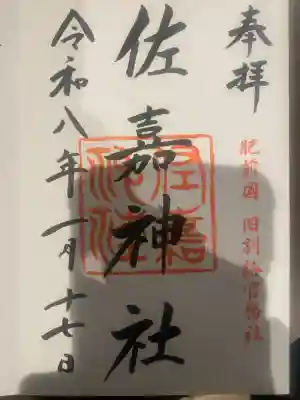 奉拝
肥前国 旧別格官幣社
佐嘉神社
令和八年一月十七日